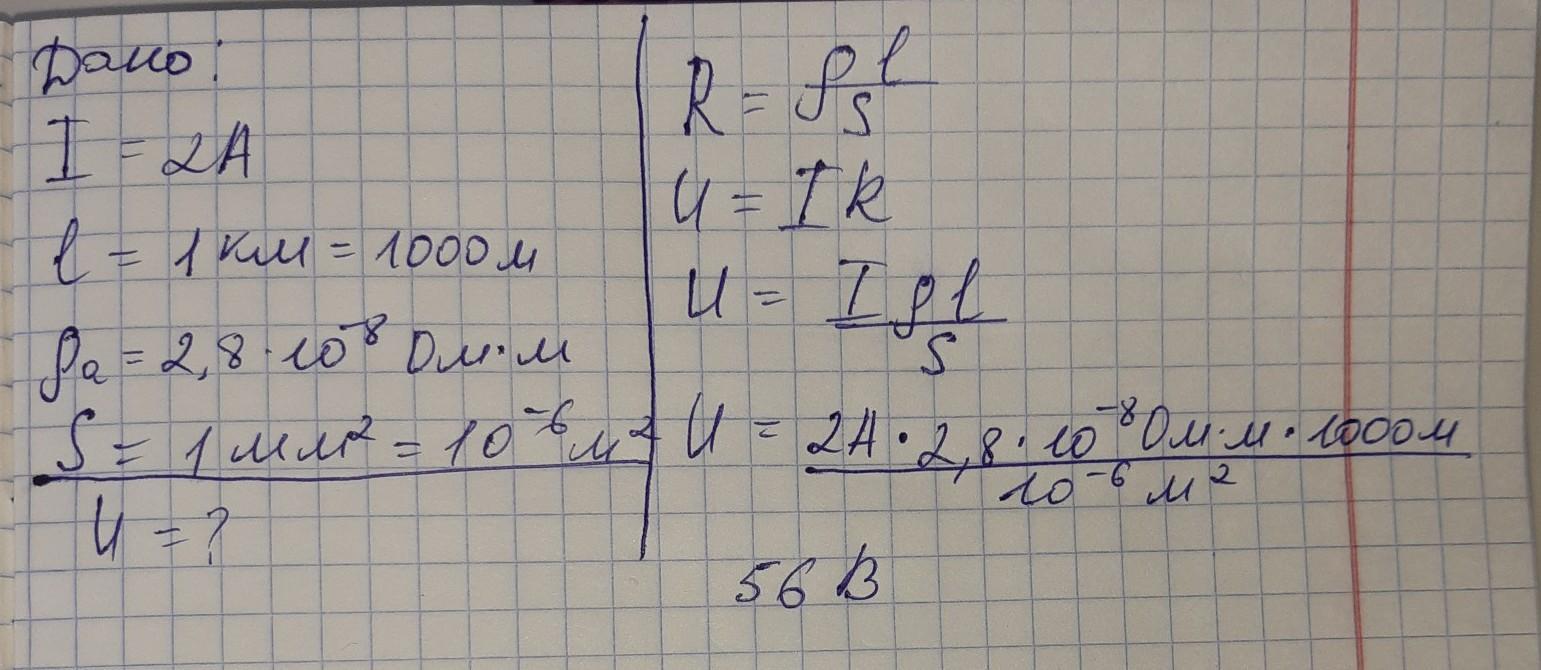 Дано:
I = 2А
l = 1 км = 1000 м
ρa = 2,8 · 10⁻⁸ Ом·м
S = 1 мм² = 10⁻⁶ м²
U = ?
R = ρl/S
U = IR
U = Iρl/S
U = 2А · 2,8 · 10⁻⁸ Ом·м · 1000м / 10⁻⁶ м²
56 В